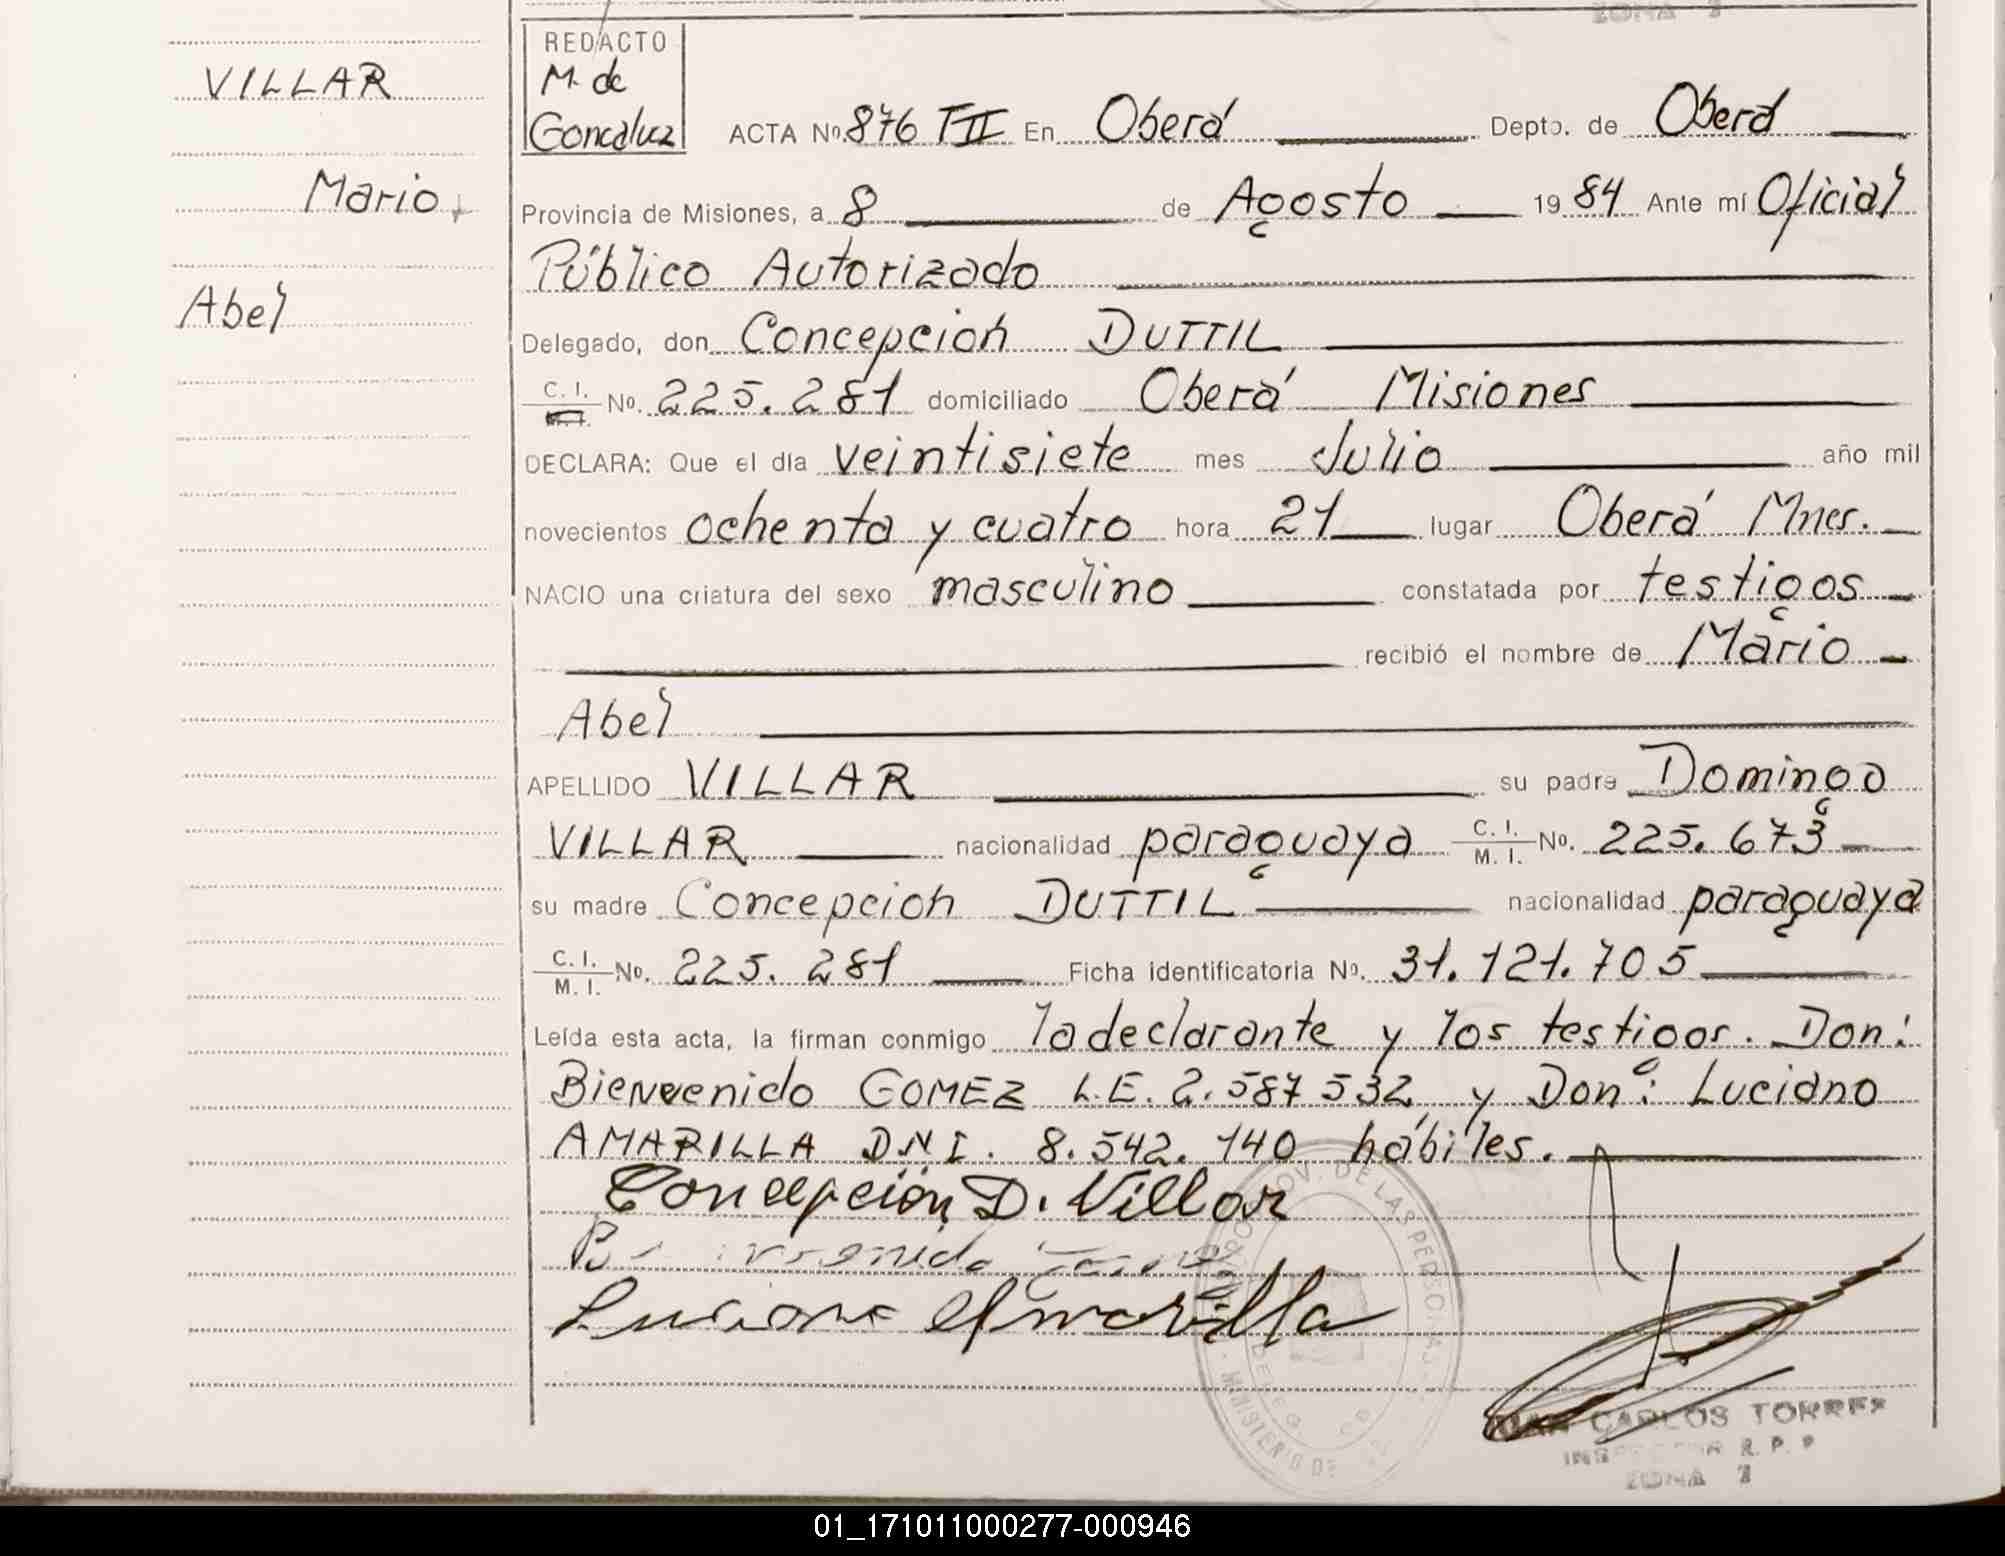 ZONA 7
VILLAR
Mario
Abel
REDACTO
M. de
Goncaluz
ACTA No. 876 TII En Oberá Depto. de Oberá
Provincia de Misiones, a 8 de Agosto 1984 Ante mí Oficial
Público Autorizado
Delegado, don Concepcion DUTTIL
C. I. No. 225.281 domiciliado Oberá Misiones
DECLARA: Que el día veintisiete mes Julio año mil
novecientos ochenta y cuatro hora 21 lugar Oberá Mnes.
NACIO una criatura del sexo masculino constatada por testigos
recibió el nombre de Mario
Abel
APELLIDO VILLAR su padre Domingo
VILLAR nacionalidad paraguaya C. I. M. I. No. 225.673
su madre Concepcion DUTTIL nacionalidad paraguaya
C. I. M. I. No. 225.281 Ficha identificatoria No. 31.121.705
Leída esta acta, la firman conmigo la declarante y los testigos. Don:
Bienvenido GOMEZ L.E. 2.587 532, y Don: Luciano
AMARILLA D.N.I. 8.542.140 hábiles.
Concepción D. Villar
Luciano Amarilla
PROV. DE LAS PERSONAS
MINISTERIO DE
JUAN CARLOS TORRES
INSPECTOR R. P. P
ZONA 7
01_171011000277-000946